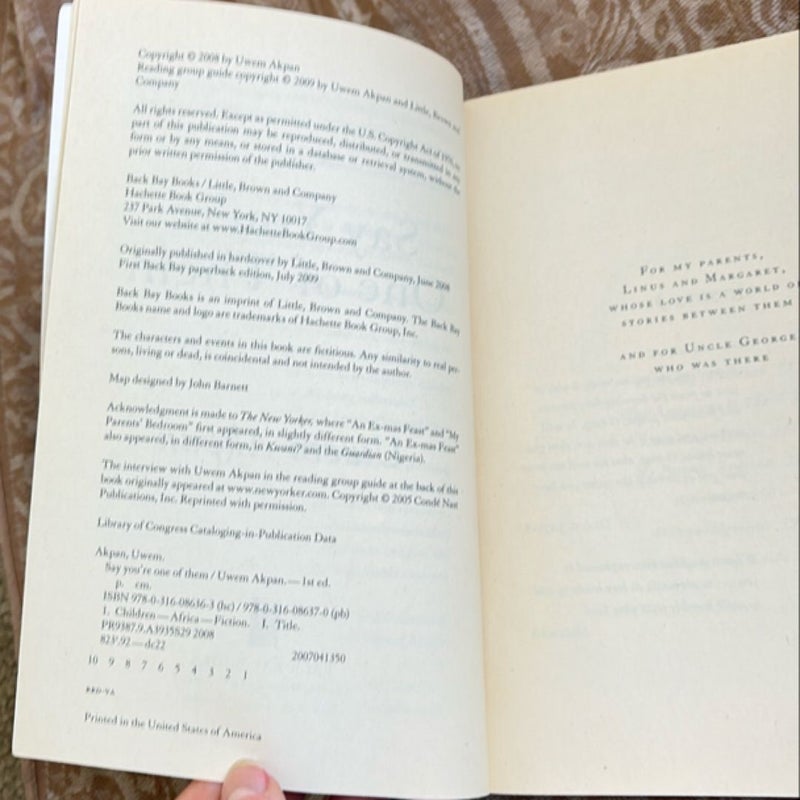 Copyright © 2008 by Uwem Akpan
Reading group guide copyright © 2009 by Uwem Akpan and Little, Brown and
Company
All rights reserved. Except as permitted under the U.S. Copyright Act of 1976, no
part of this publication may be reproduced, distributed, or transmitted in any
form or by any means, or stored in a database or retrieval system, without the
prior written permission of the publisher.
Back Bay Books / Little, Brown and Company
Hachette Book Group
237 Park Avenue, New York, NY 10017
Visit our website at www.HachetteBookGroup.com
Originally published in hardcover by Little, Brown and Company, June 2008
First Back Bay paperback edition, July 2009
Back Bay Books is an imprint of Little, Brown and Company. The Back Bay
Books name and logo are trademarks of Hachette Book Group, Inc.
The characters and events in this book are fictitious. Any similarity to real per-
sons, living or dead, is coincidental and not intended by the author.
Map designed by John Barnett
Acknowledgment is made to The New Yorker, where "An Ex-mas Feast" and "My
Parents' Bedroom" first appeared, in slightly different form. "An Ex-mas Feast"
also appeared, in different form, in Kwani? and the Guardian (Nigeria).
The interview with Uwem Akpan in the reading group guide at the back of this
book originally appeared at www.newyorker.com. Copyright © 2005 Condé Nast
Publications, Inc. Reprinted with permission.
Library of Congress Cataloging-in-Publication Data
Akpan, Uwem.
Say you're one of them / Uwem Akpan. — 1st ed.
p. cm.
ISBN 978-0-316-08636-3 (hc) / 978-0-316-08637-0 (pb)
1. Children — Africa — Fiction. I. Title.
PR9387.9.A3935S29 2008
823'.92 — dc22
2007041350
10 9 8 7 6 5 4 3 2 1
RRD-VA
Printed in the United States of America
For my parents,
Linus and Margaret,
whose love is a world of
stories between them
and for Uncle George
who was there